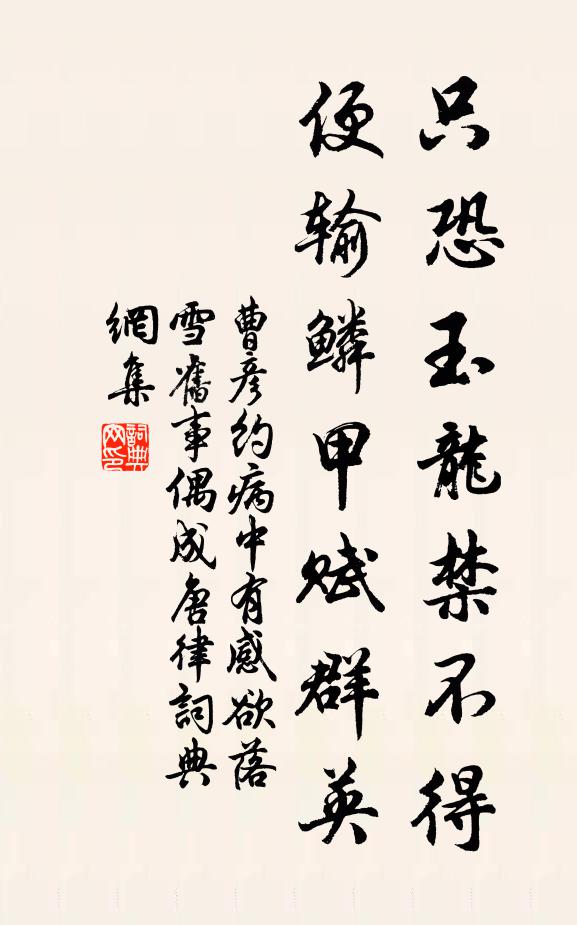 只恐玉龍禁不得
便输鳞甲赋群英
曹彦约病中有感欲落
雪舊事偶成唐律詞典
網集
詞典
网印